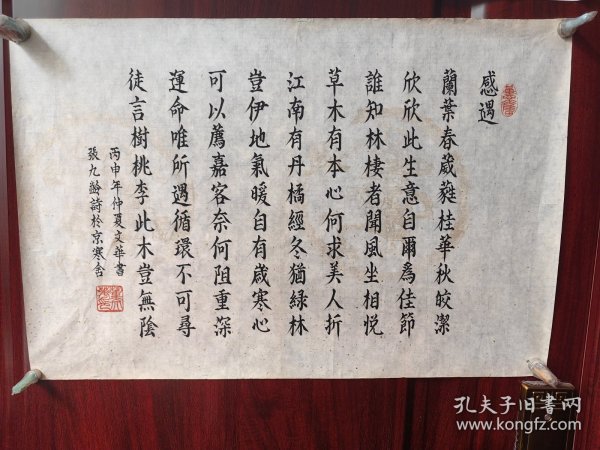 感遇
蘭葉春葳蕤桂華秋皎潔
欣欣此生意自爾為佳節
誰知林棲者聞風坐相悅
草木有本心何求美人折
江南有丹橘經冬猶綠林
豈伊地氣暖自有歲寒心
可以薦嘉客奈何阻重深
運命唯所遇循環不可尋
徒言樹桃李此木豈無陰
丙申年仲夏文華書
張九齡詩於京寒舍
孔夫子旧書网
www.kongfz.com